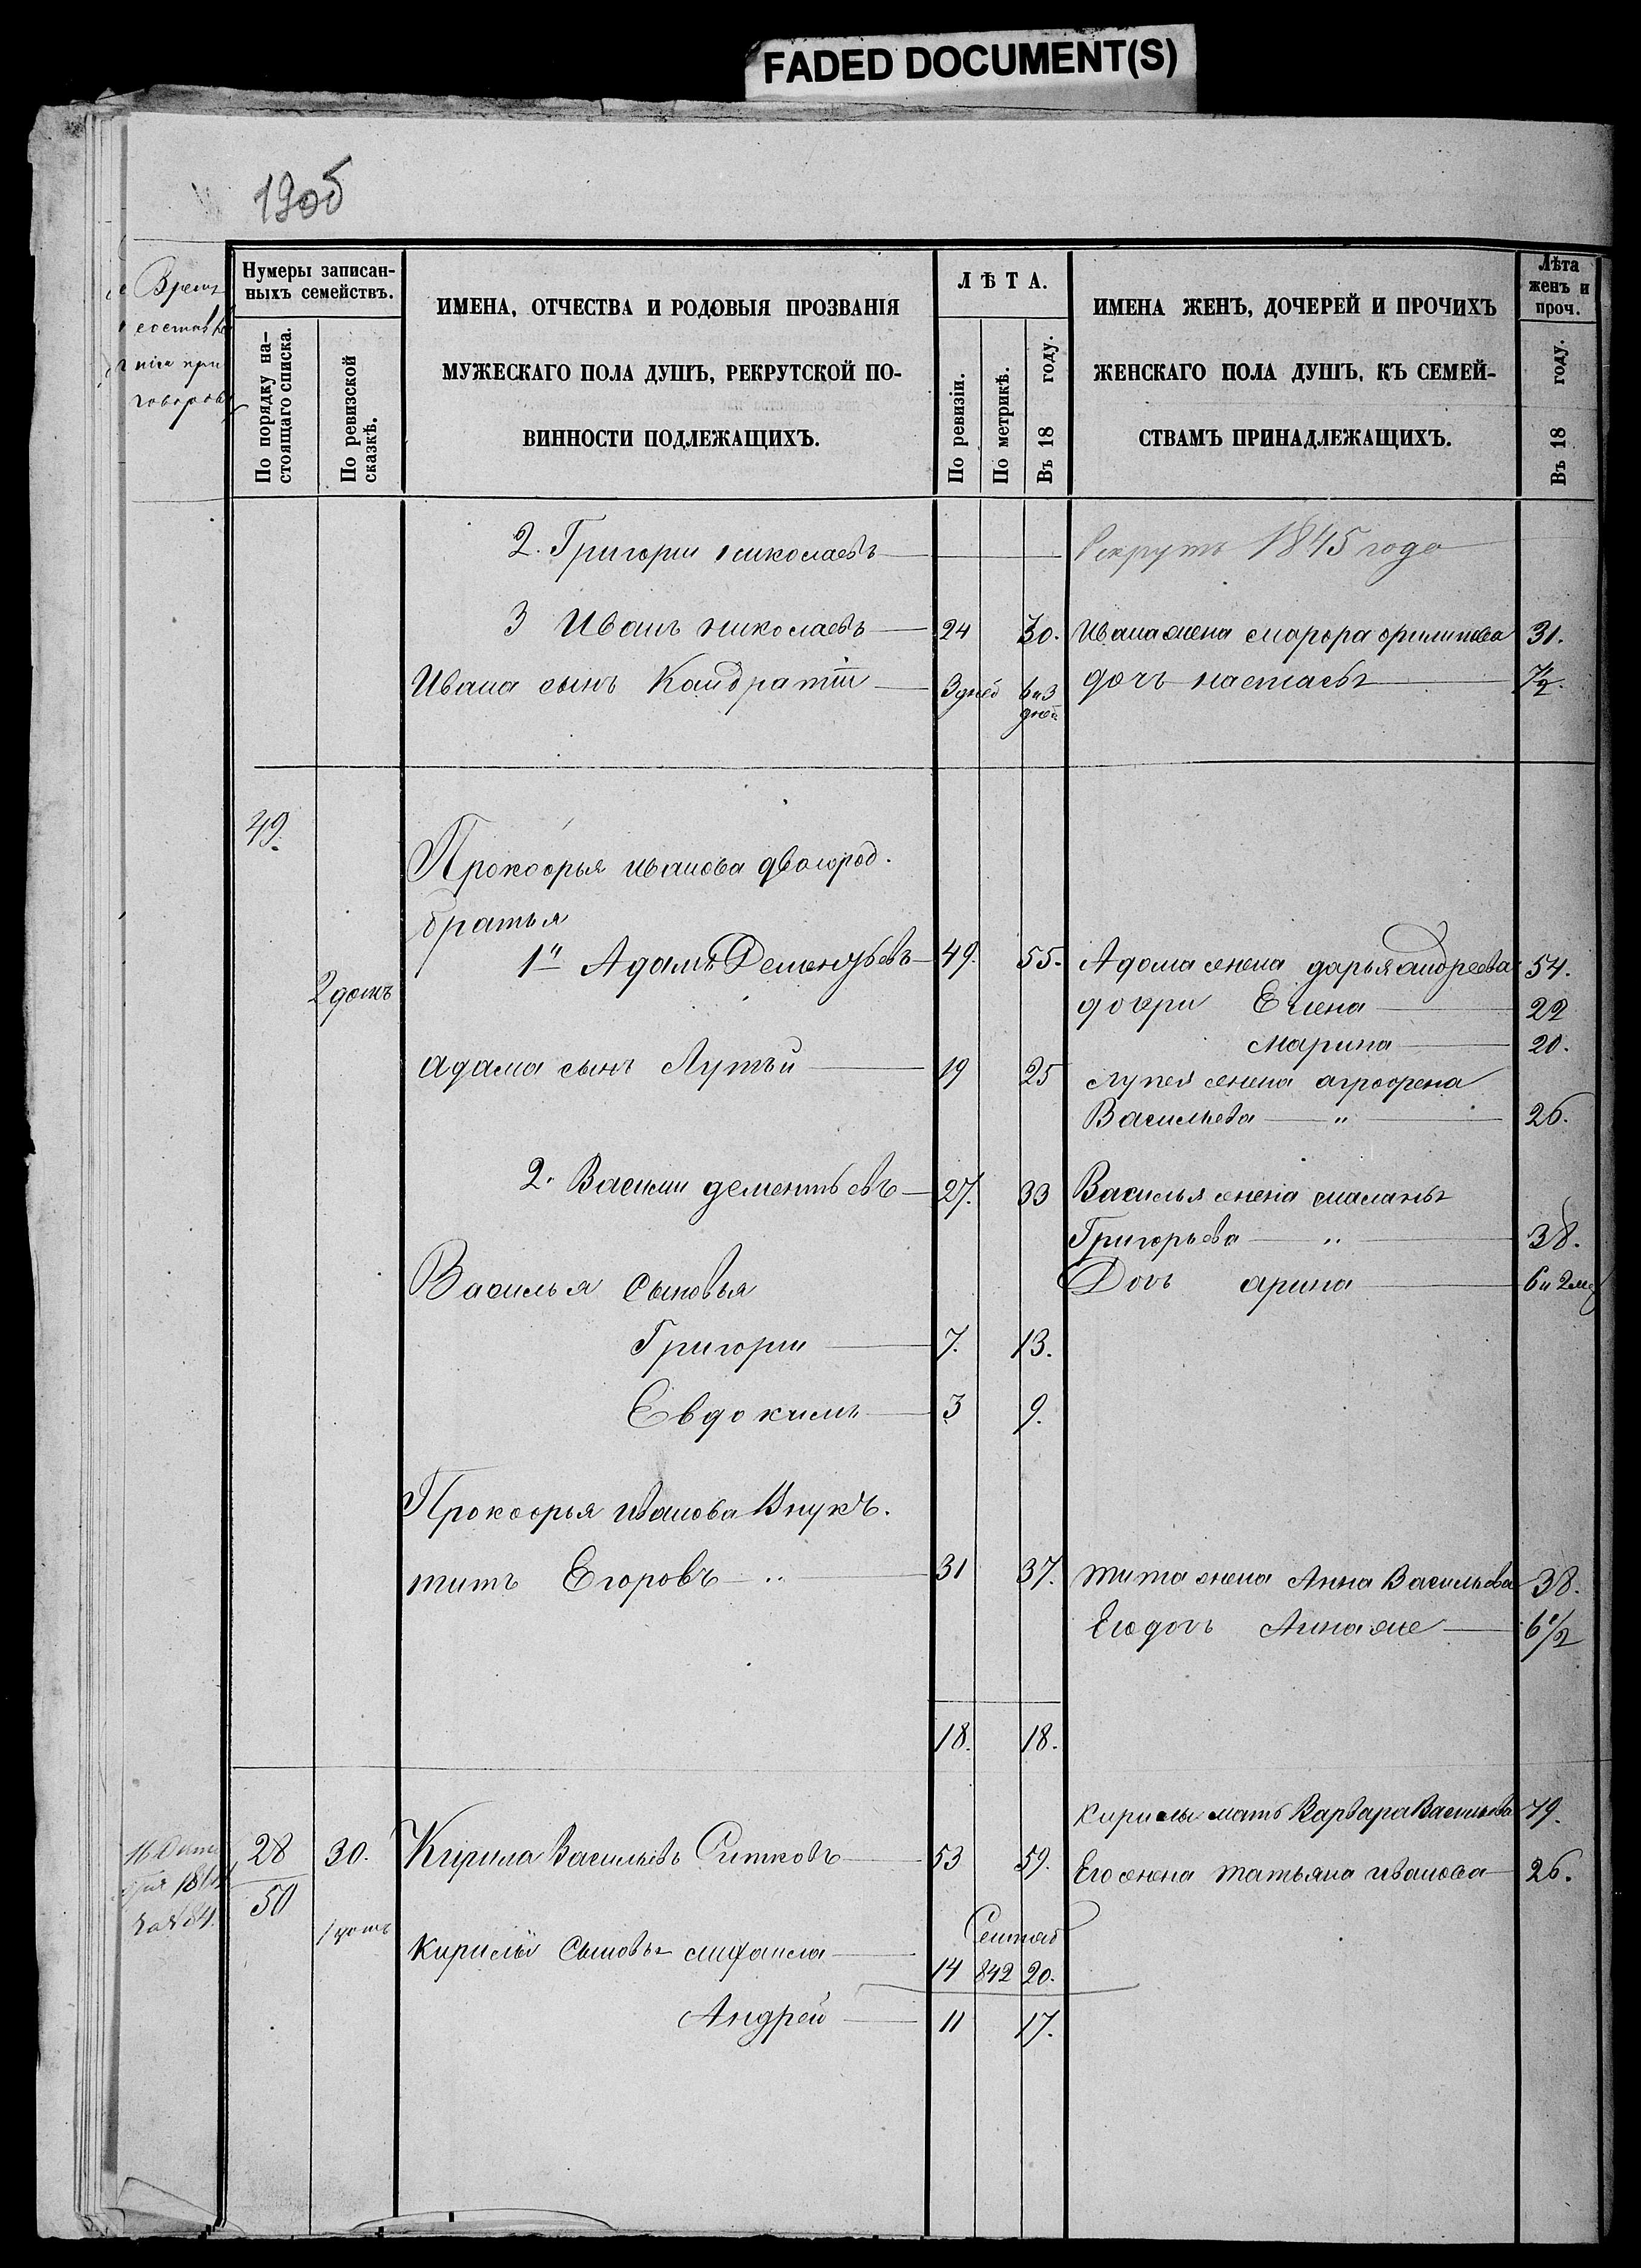 FADED DOCUMENT(S)
190б
Время
составле
нія при
говоровъ
Нумеры записан-
ныхъ семействъ.
По порядку на-
стоящаго списка.
По ревизской
сказкѣ.
ИМЕНА, ОТЧЕСТВА И РОДОВЫЯ ПРОЗВАНІЯ
МУЖЕСКАГО ПОЛА ДУШЪ, РЕКРУТСКОЙ ПО-
ВИННОСТИ ПОДЛЕЖАЩИХЪ.
ЛѢТА.
По ревизіи.
По метрикѣ.
Въ 18 году.
ИМЕНА ЖЕНЪ, ДОЧЕРЕЙ И ПРОЧИХЪ
ЖЕНСКАГО ПОЛА ДУШЪ, КЪ СЕМЕЙ-
СТВАМЪ ПРИНАДЛЕЖАЩИХЪ.
Лѣта
женъ и
проч.
Въ 18 году.
2. Григории николаевъ Рекрутъ 1845 года
3 Иванъ николаевъ 24 30. Ивана жена марфа филипова 31.
Ивана сынъ Кандратiи 3 дней 6 и 3 дней дочь настасья 7½.
49.
Прокофья иванова двоюрод.
братья
1й Адамъ Дементьевъ 49. 55. Адама жена дарья андреева 54.
2 домъ дочери Елена 22
марина 20.
адама сынъ Лупѣй 19 25 лупея жена агрофена
Васильева " 26.
2. Василии дементьевъ 27. 33 Василья жена маланья
Григорьева " 38.
Василья сыновья Дочь арина 6 и 2 мѣ
Григории 7. 13.
Евдокимъ 3 9.
Прокофья иванова Внукъ.
титъ Егоровъ " 31 37. тита жена Анна Васильева 38.
Его дочь Анна же 6 1/2
18. 18.
кирилы мать Варвара Васильева 79.
28 30. Кирила Васильевъ Ситковъ 53 59. Его жена татьяна иванова 26.
50
1 домъ
Сентяб
кирилы сыновья михаила 14 842 20.
Андрей 11 17.